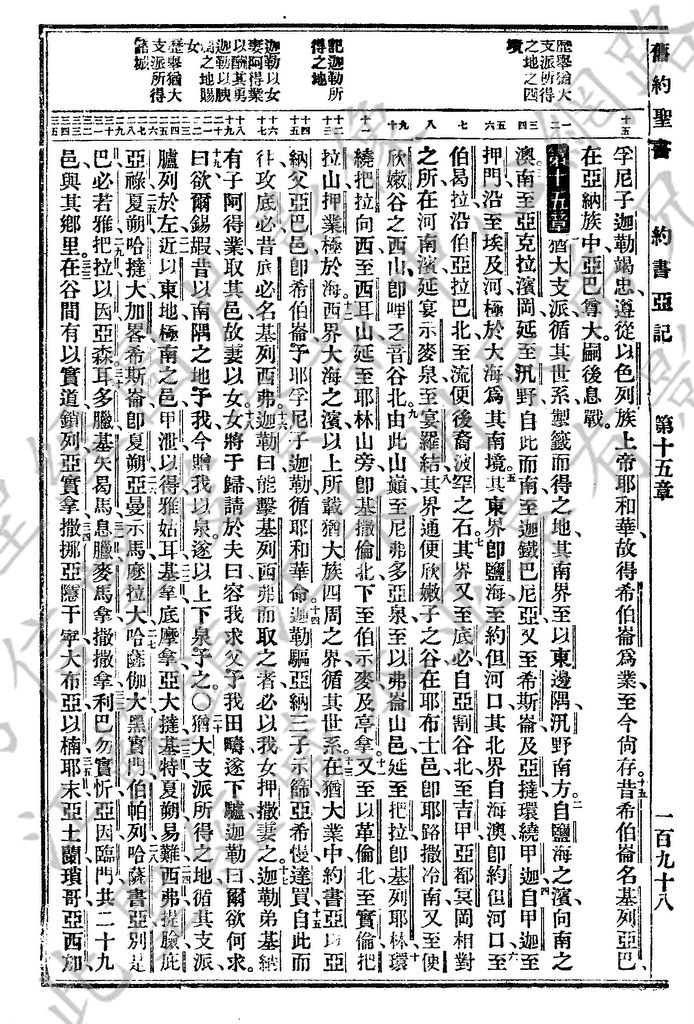 舊約聖書
約書亞記
第十五章
一百九十八
歷舉猶大
支派所得
之地之四
境
記迦勒所
得之地
迦勒以女
妻阿得業
以酬其勇
迦勒以腴
之地賜
女
歷舉猶大
支派所得
諸城
孚尼子迦勒竭忠遵從以色列族上帝耶和華故得希伯崙爲業至今尙存昔希伯崙名基列亞巴
在亞納族中亞巴尊大嗣後息戰
第十五章 猶大支派循其世系製籤而得之地其南界至以東邊隅汎野南方自鹽海之濱向南之
澳南至亞克拉濱岡延至汎野自此而南至迦鐵巴尼亞又至希斯崙及亞撻環繞甲迦自甲迦至
押門沿至埃及河極於大海爲其南境其東界卽鹽海至約但河口其北界自海澳卽約但河口至
伯曷拉沿伯亞拉巴北至流便後裔波罕之石其界又至底必自亞割谷北至吉甲亞都冥岡相對
之所在河南濱延宴示麥泉至宴羅結其界通便欣嫩子之谷在耶布士邑卽耶路撒冷南又至便
欣嫩谷之西山卽哩乏音谷北由此山巔至尼弗多亞泉至以弗崙山邑延至把拉卽基列耶林環
繞把拉向西至西耳山延至耶林山旁卽基撒倫北下至伯示麥及亭拿又至以革倫北至實倫把
拉山押業極於海西界大海之濱以上所載猶大族四周之界循其世系在猶大業中約書亞以亞
納父亞巴邑卽希伯崙予耶孚尼子迦勒循耶和華命迦勒驅亞納三子示篩亞希慢達買自此而
往攻底必昔底必名基列西弗迦勒曰能擊基列西弗而取之者必以我女押撒妻之迦勒弟基納
有子阿得業取其邑故妻以女女將于歸請於夫曰容我求父予我田疇遂下驢迦勒曰爾欲何求
曰欲爾錫嘏昔以南隅之地予我今贈我以泉遂以上下泉予之〇猶大支派所得之地循其支派
臚列於左近以東地極南之邑甲泄以得雅姑耳基拿底摩拿亞大撻基特夏朔易難西弗提臘庇
亞祿夏朔哈撻大加畧希斯崙卽夏朔亞曼示馬麽拉大哈薩伽大黑實門伯帕列哈薩書亞別是
巴必若雅把拉以因亞森耳多臘基矢曷馬息臘麥馬拿撒撒拿利巴勿實忻亞因臨門共二十九
邑與其鄉里在谷間有以實道鎖列亞實拿撒挪亞隱干寧大布亞以楠耶末亞土蘭瑣哥亞西加